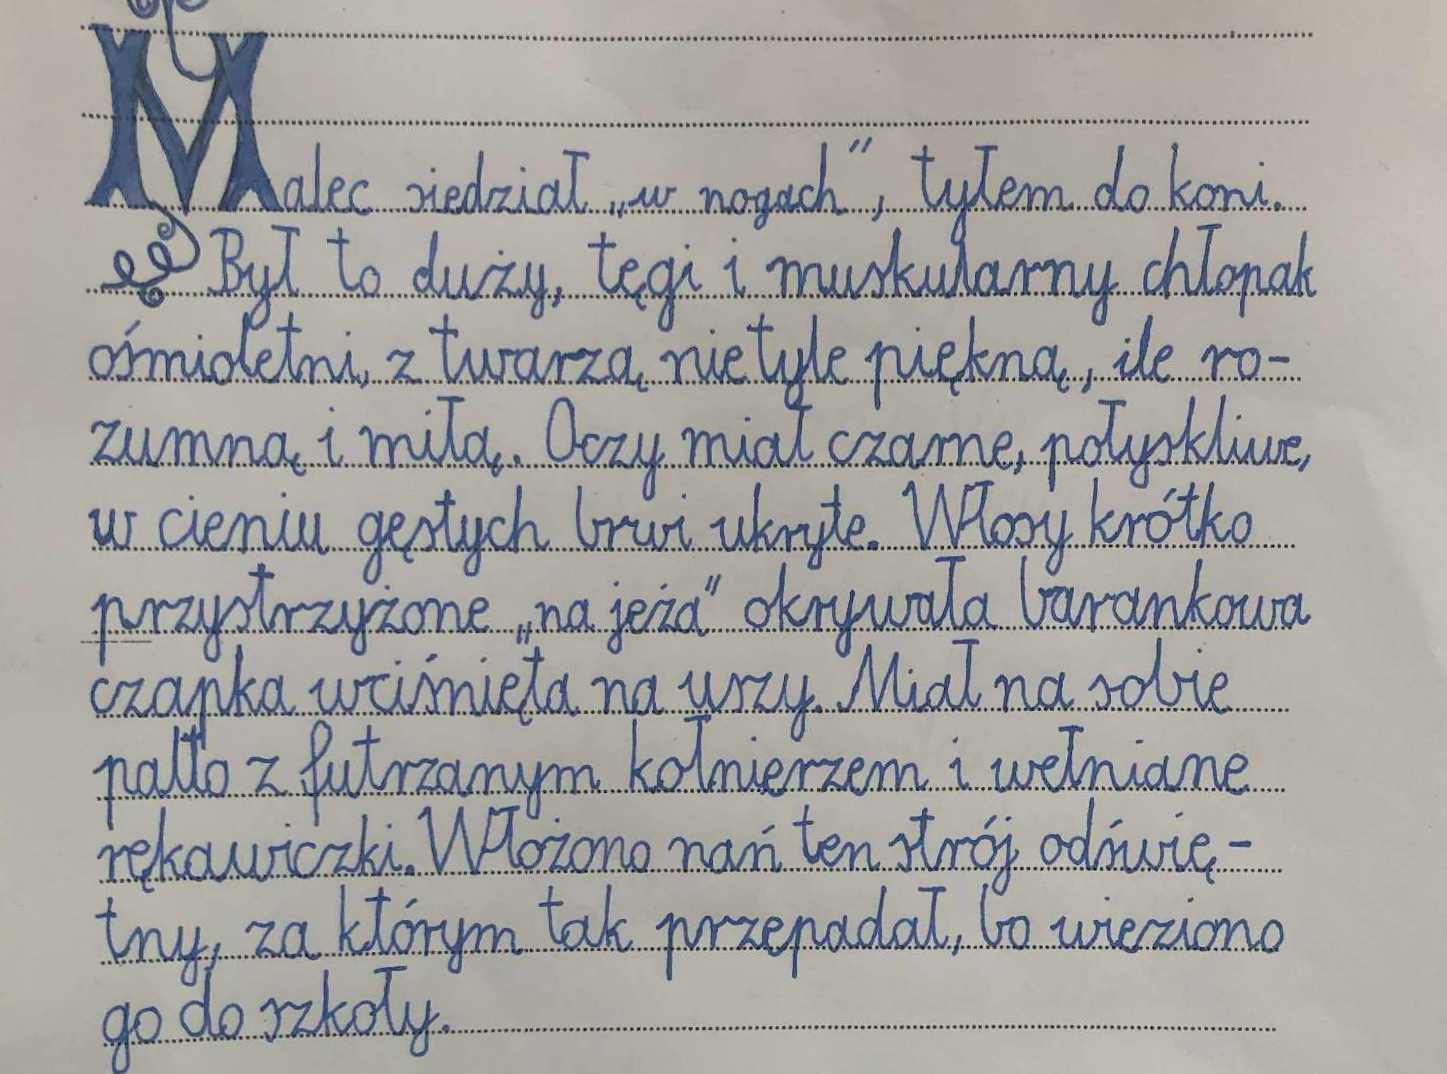 Malec siedział „w nogach”, tyłem do koni.
Był to duży, tęgi i muskularny chłopak
ośmioletni, z twarzą nie tyle piękną, ile ro-
zumną i miłą. Oczy miał czarne, połyskliwe,
w cieniu gęstych brwi ukryte. Włosy krótko
przystrzyżone „na jeża” okrywała barankowa
czapka wciśnięta na uszy. Miał na sobie
palto z futrzanym kołnierzem i wełniane
rękawiczki. Włożono nań ten strój odświę-
tny, za którym tak przepadał, bo wieziono
go do szkoły.